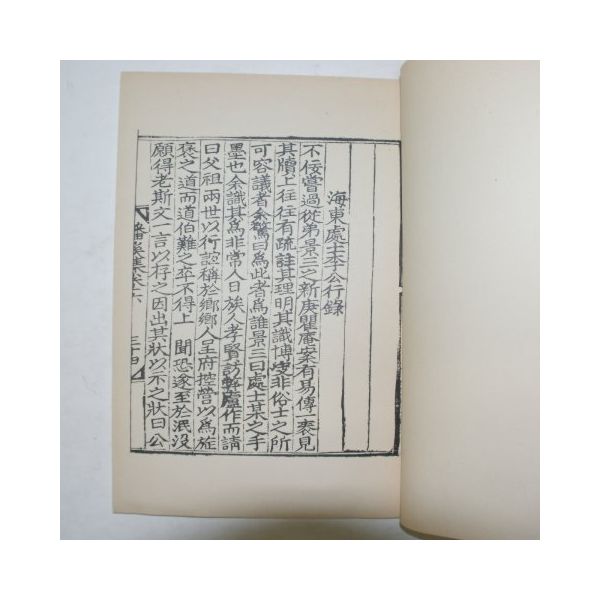 海東處士李公行錄
不佞嘗過從弟景三之新庚瞿庵案有易傳一袠見
其牘上往往有疏註其理明其識博叟非俗士之所
可容議者余驚曰爲此者爲誰景三曰處士某之手
墨也余識其爲非常人日族人孝賢訪弊廬作而請
曰父祖兩世以行誼稱於鄉鄉人呈府控營以爲旌
褒之道而道伯難之卒不得上 聞恐遂至於泯沒
願得老斯文一言以杼之因出其狀以示之狀曰公
集卷六
三十四